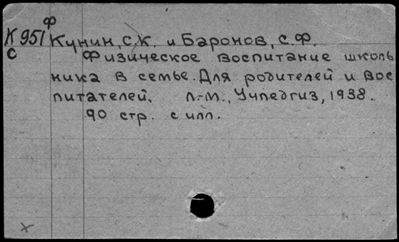 Ф
К 951 Кунин, С.К. и Баронов, С.Ф.
С Физическое воспитание школь
ника в семье. Для родителей и вос
питателей. Л.-М., Учпедгиз, 1938.
90 стр. с илл.